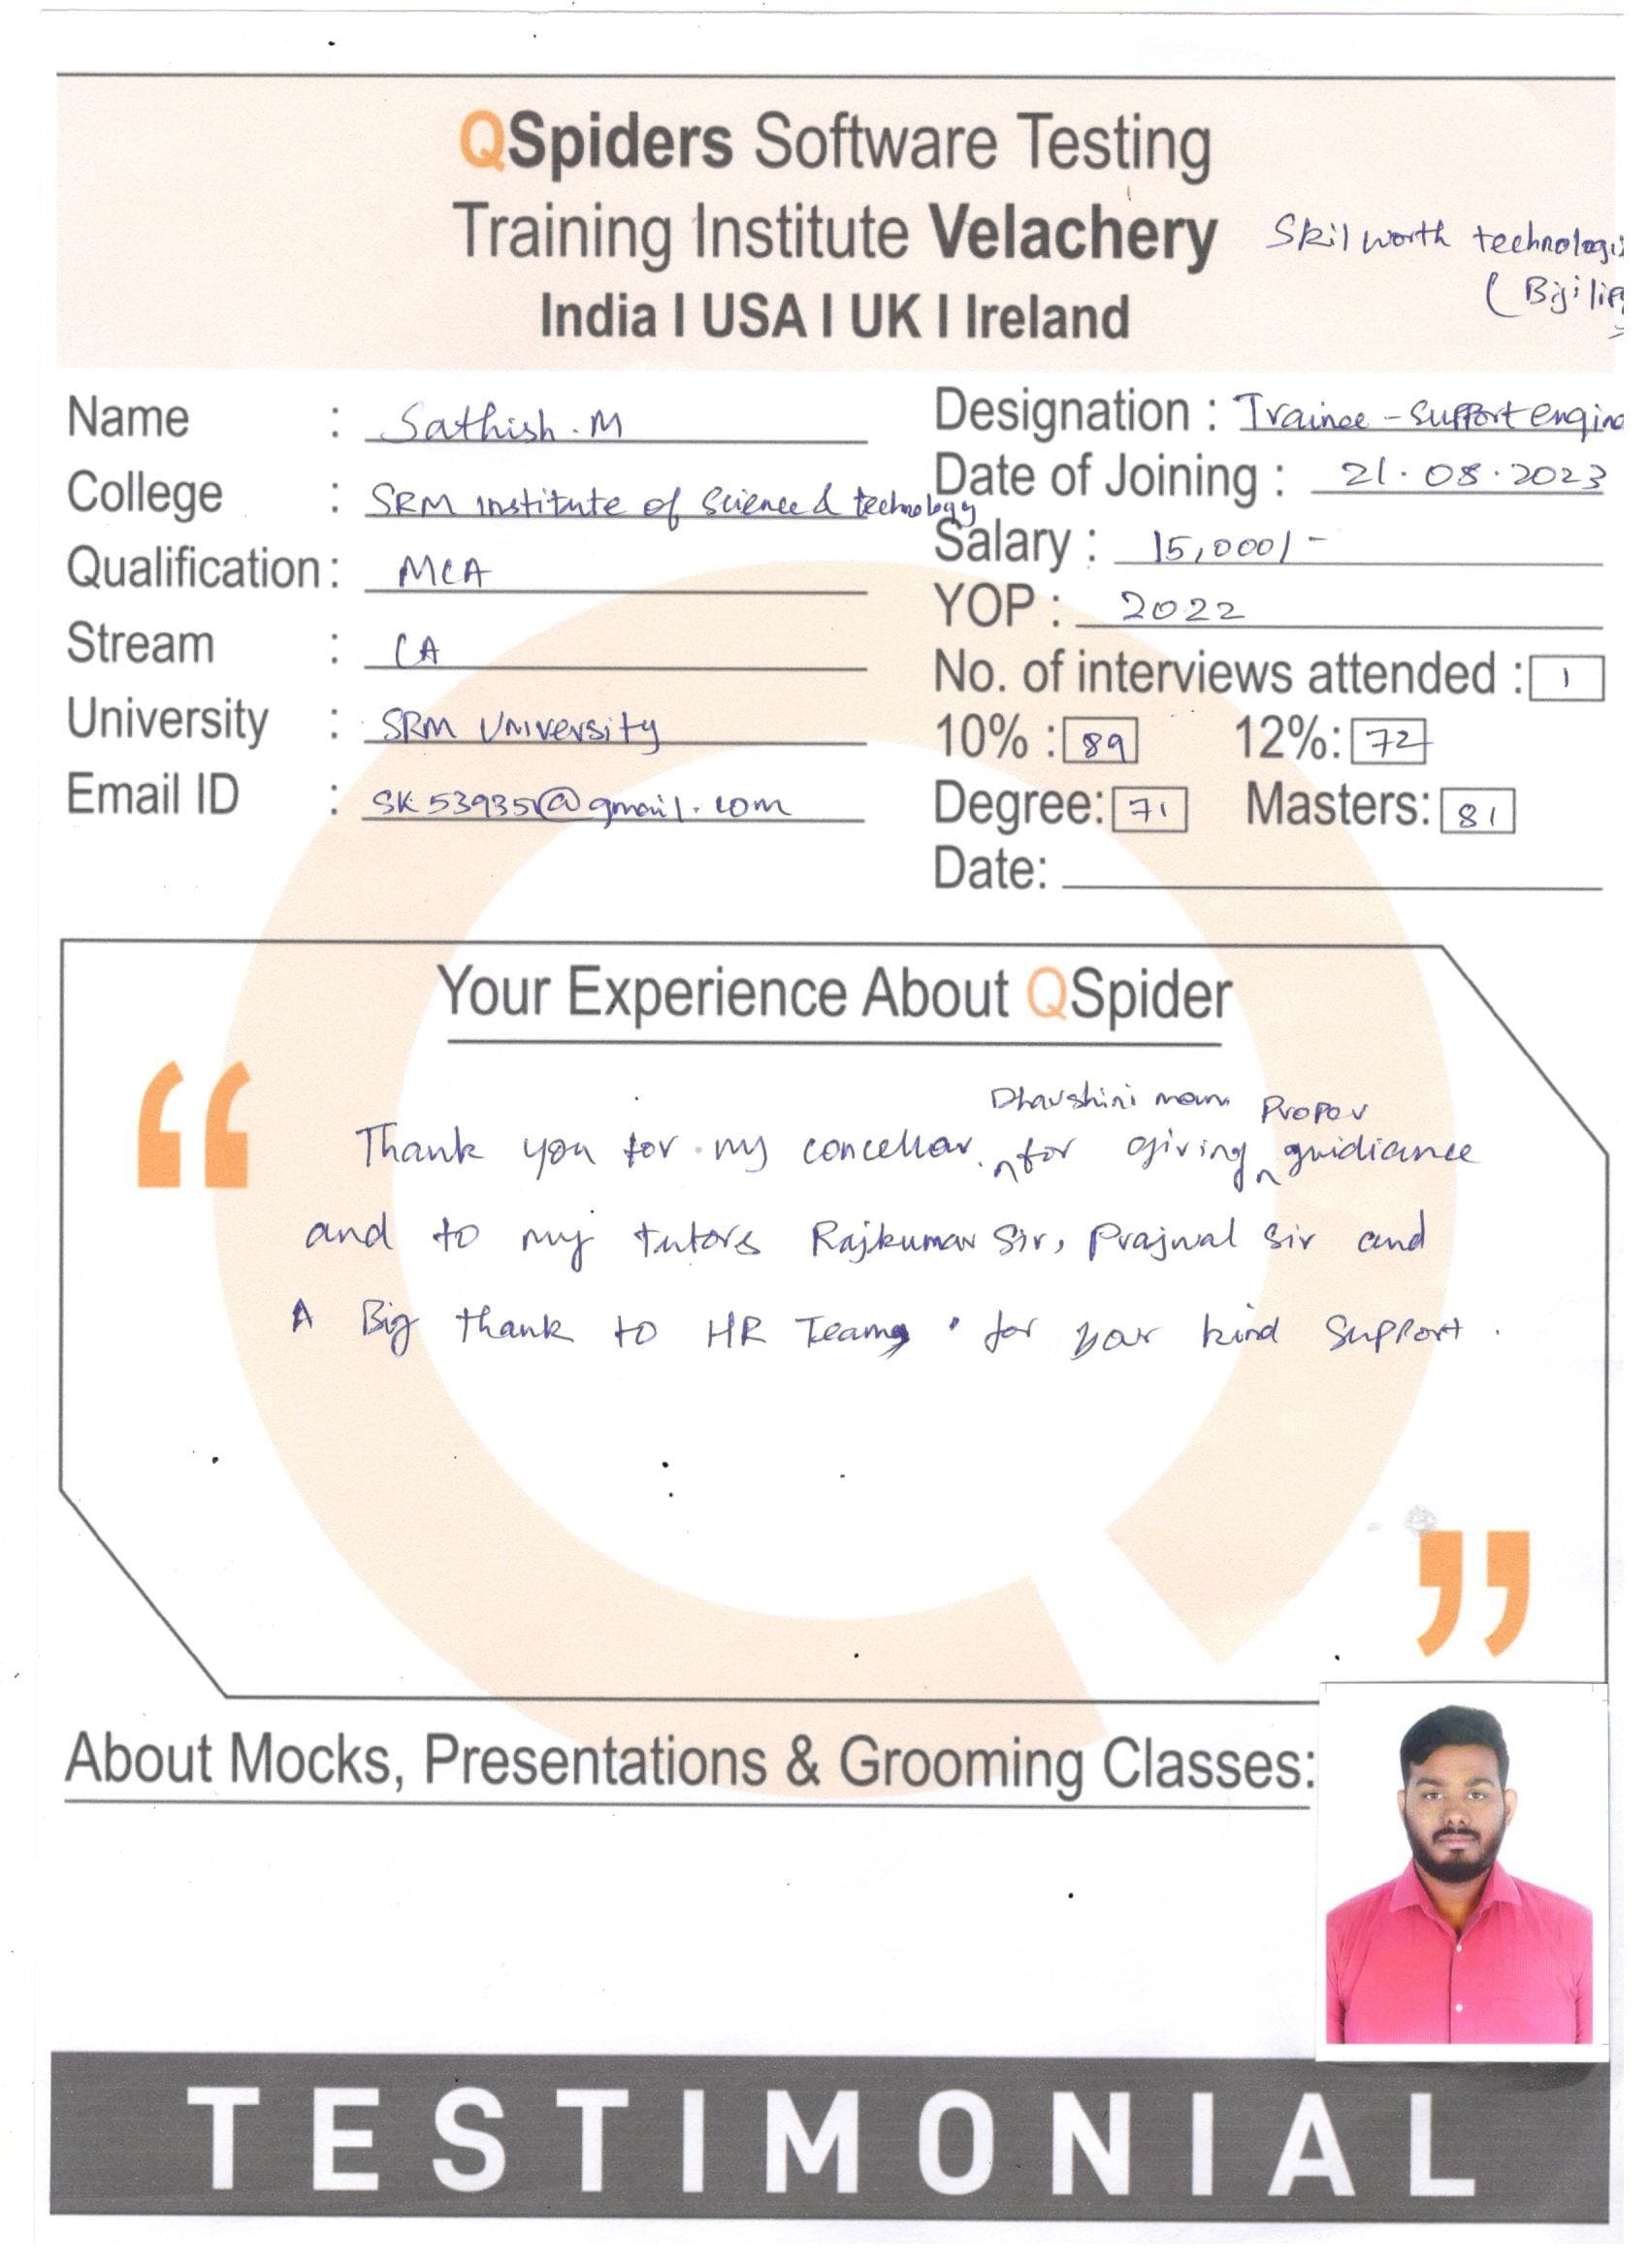 QSpiders Software Testing
Training Institute Velachery
Skil worth technologi
India I USA I UK I Ireland
(Bijili
Name : Sathish.M
Designation : Trainee - Support engine
College : SRM institute of Science & technology
Date of Joining : 21.08.2023
Salary : 15,000/-
Qualification : MCA
YOP : 2022
Stream : CA
No. of interviews attended : 1
University : SRM University
10% : 89 12%: 72
Email ID : SK53935@gmail.com
Degree: 71 Masters: 81
Date:
Your Experience About QSpider
“
Dharshini mam Proper
Thank you for my concellar. for giving guidiance
and to my tutors Rajkumar Sir, Prajwal Sir and
A Big thank to HR Teams for your kind Support.
”
About Mocks, Presentations & Grooming Classes:
TESTIMONIAL